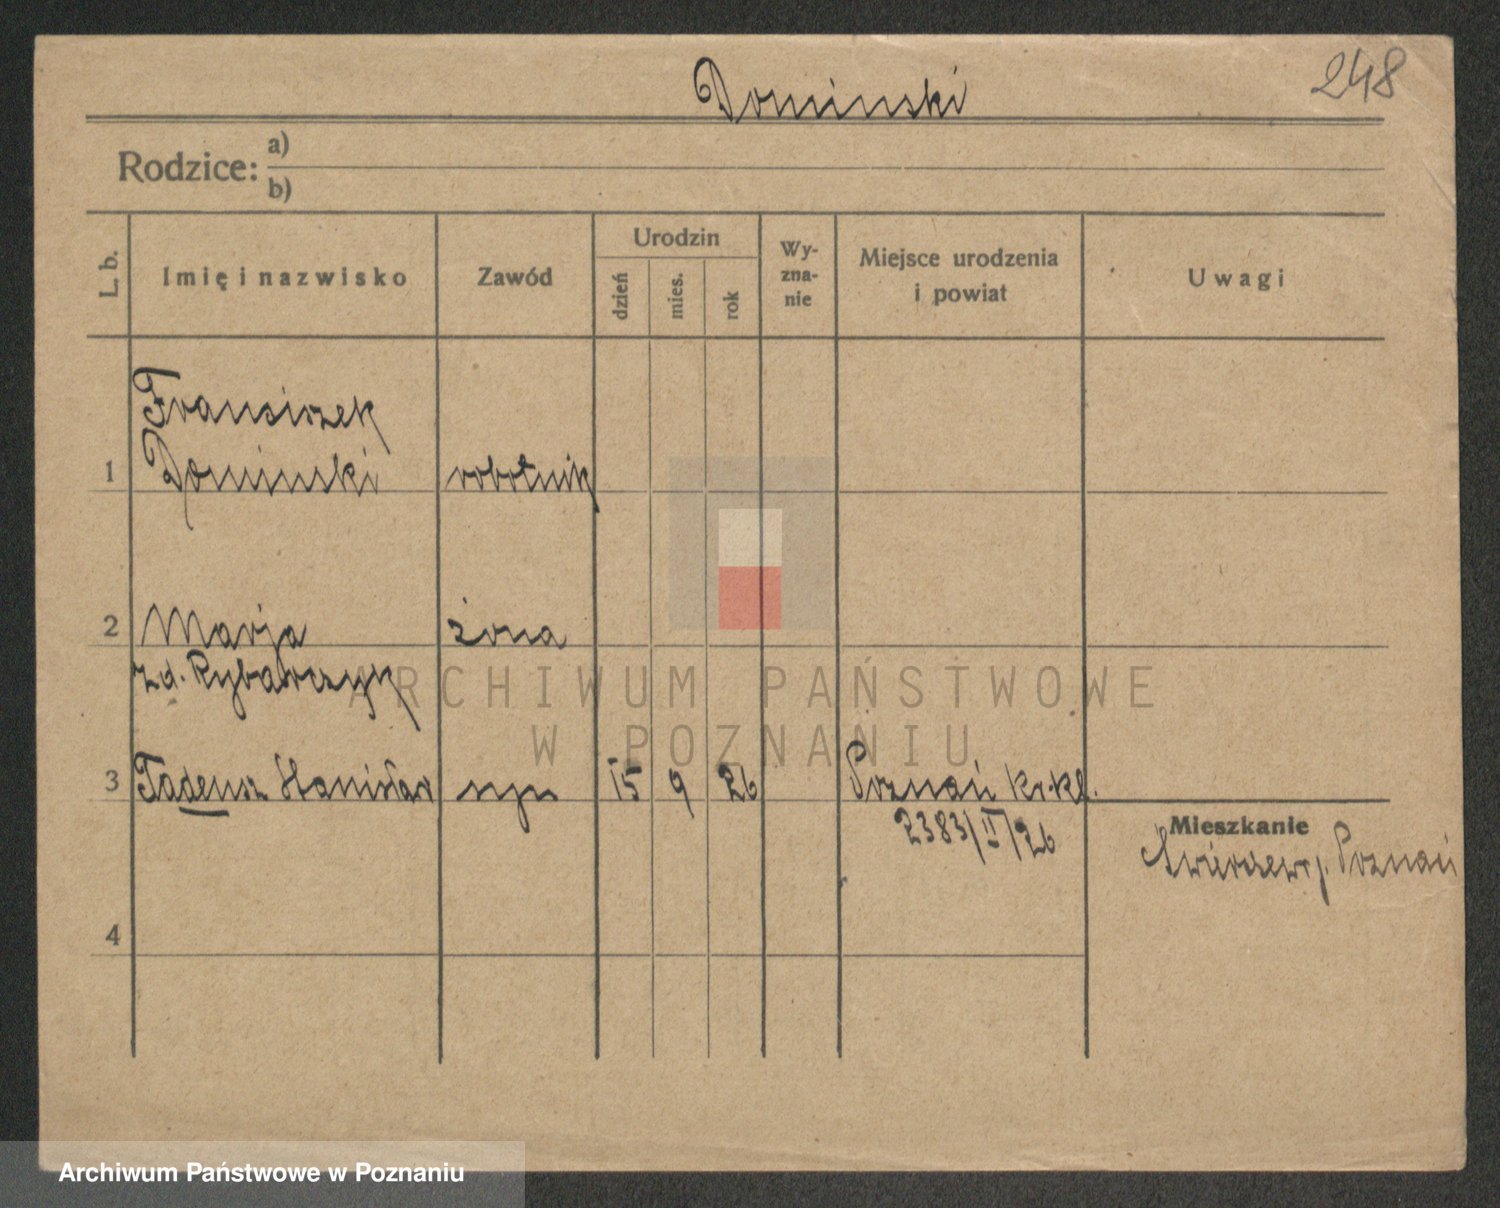 Dominski
248
Rodzice: a)
b)
L. b.
Imię i nazwisko
Zawód
Urodzin
dzień
mies.
rok
Wy-
zna-
nie
Miejsce urodzenia
i powiat
Uwagi
Fransiszek
1 Dominski robotnik
2 Marja żona
zd. Rybarczyk
3 Tadeusz Stanisław syn 15 9 26 Poznań kr. kl.
2383/II/26
Mieszkanie
Poznań
4
ARCHIWUM PAŃSTWOWE
W POZNANIU
Archiwum Państwowe w Poznaniu